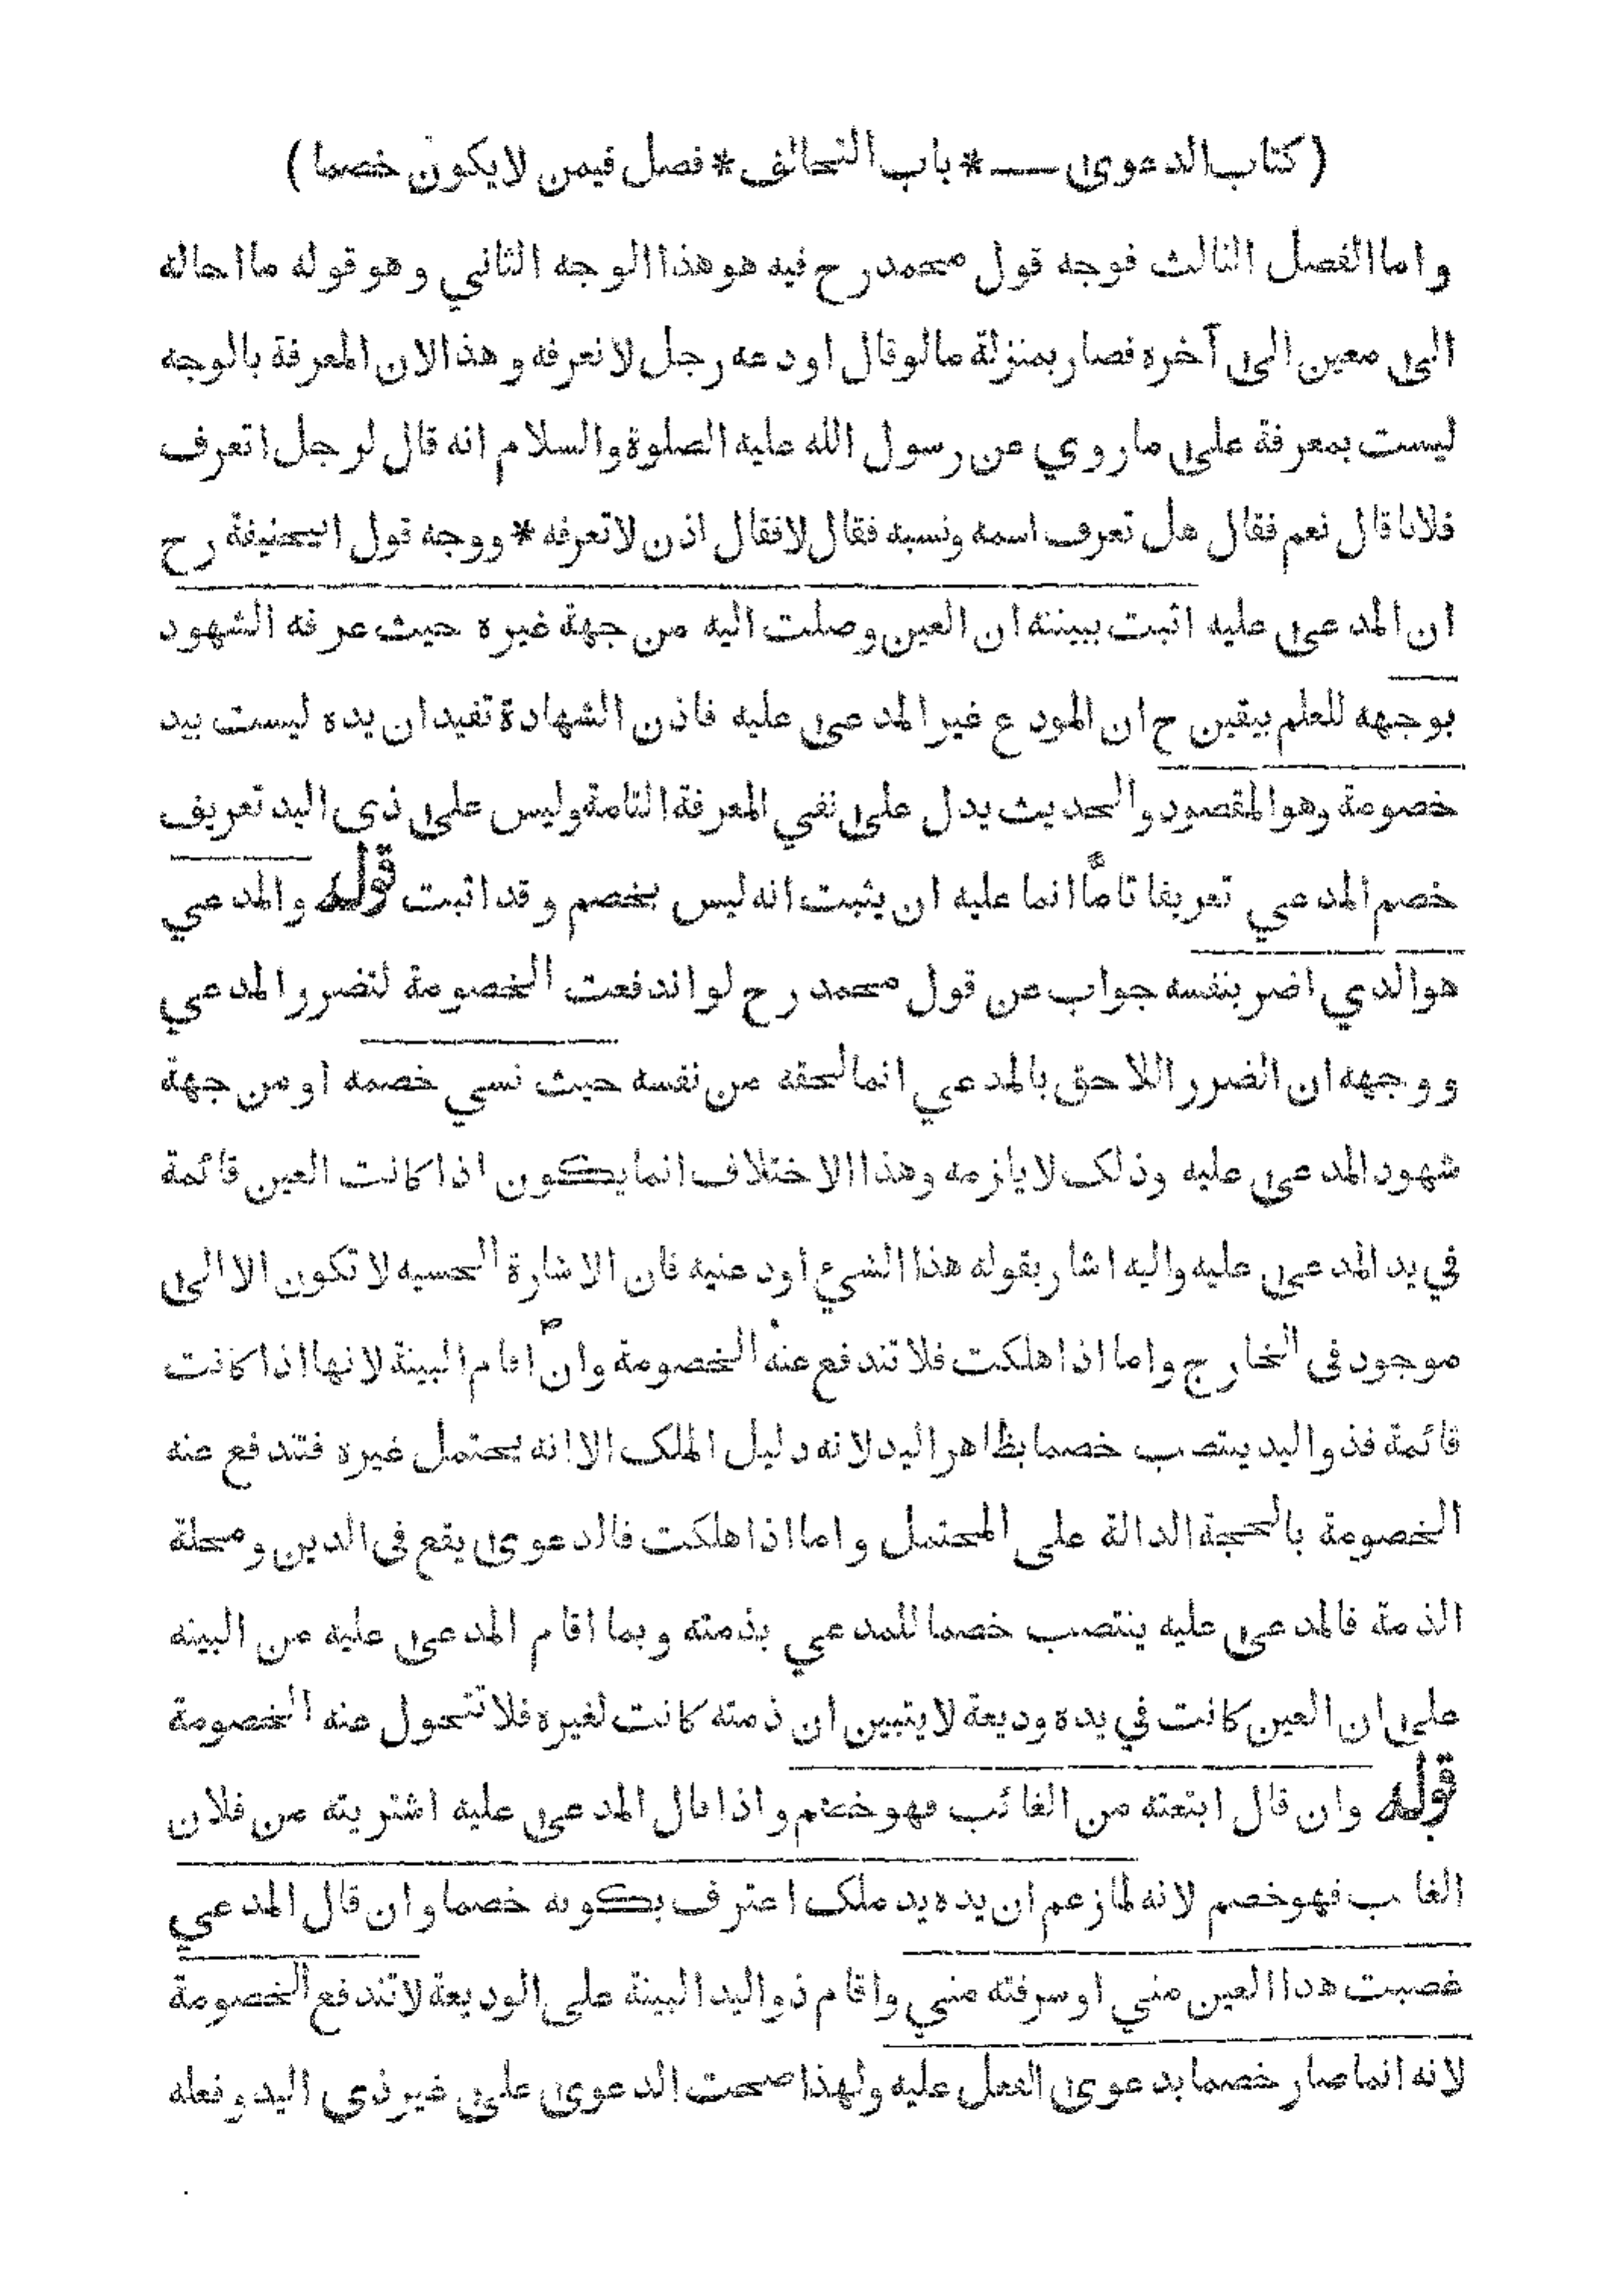 ( كتاب الدعوى — * باب التحالف * فصل فيمن لا يكون خصما )
واما الفصل الثالث فوجه قول محمد رح فيه هو هذا الوجه الثاني وهو قوله ما احاله
الى معين الى آخره فصار بمنزلة ما لو قال اودعه رجل لا نعرفه وهذا لان المعرفة بالوجه
ليست بمعرفة على ما روي عن رسول الله عليه الصلوة والسلام انه قال لرجل اتعرف
فلانا قال نعم فقال هل تعرف اسمه ونسبه فقال لا فقال اذن لا تعرفه * ووجه قول ابيحنيفة رح
ان المدعى عليه اثبت ببينته ان العين وصلت اليه من جهة غيره حيث عرفه الشهود
بوجهه للعلم بيقين ح ان المودع غير المدعى عليه فاذن الشهادة تفيد ان يده ليست بيد
خصومة وهو المقصود والحديث يدل على نفي المعرفة التامة وليس على ذى اليد تعريف
خصم المدعي تعريفا تامّا انما عليه ان يثبت انه ليس بخصم وقد اثبت قوله والمدعي
هو الذي اضر بنفسه جواب عن قول محمد رح لو اندفعت الخصومة لتضرر المدعي
ووجهه ان الضرر اللاحق بالمدعي انما لحقه من نفسه حيث نسي خصمه او من جهة
شهود المدعى عليه وذلك لا يلزمه وهذا الاختلاف انما يكون اذا كانت العين قائمة
في يد المدعى عليه واليه اشار بقوله هذا الشيء اودعنيه فان الاشارة الحسيه لا تكون الا الى
موجود فى الخارج واما اذا هلكت فلا تندفع عنه الخصومة وان اقام البينة لانها اذا كانت
قائمة فذو اليد ينتصب خصما بظاهر اليد لانه دليل الملك الا انه يحتمل غيره فتندفع عنه
الخصومة بالحجة الدالة على المحتمل واما اذا هلكت فالدعوى يقع فى الدين ومحلة
الذمة فالمدعى عليه ينتصب خصما للمدعي بذمته وبما اقام المدعى عليه من البينه
على ان العين كانت في يده وديعة لا يتبين ان ذمته كانت لغيره فلا تتحول عنه الخصومة
قوله وان قال ابتعته من الغائب فهو خصم واذا قال المدعى عليه اشتريته من فلان
الغائب فهو خصم لانه لما زعم ان يده يد ملك اعترف بكونه خصما وان قال المدعي
غصبت هذا العين مني او سرقته مني واقام ذو اليد البينة على الوديعة لا تندفع الخصومة
لانه انما صار خصما بدعوى الفعل عليه ولهذا صحت الدعوى على غير ذي اليد وفعله